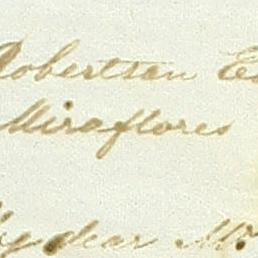 Robertson Es
Miraflores
My dear Mr